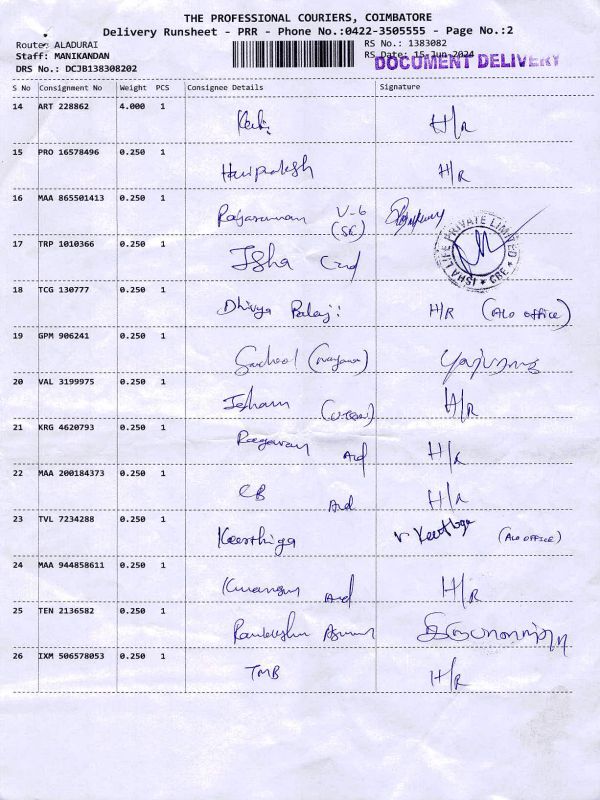 THE PROFESSIONAL COURIERS, COIMBATORE
Delivery Runsheet - PRR - Phone No.:0422-3505555 - Page No.:2
Route: ALADURAI
RS No.: 1383082
Staff: MANIKANDAN
RS Date: 15-Jun-2024
DOCUMENT DELIVERY
DRS No.: DCJB138308202
S No Consignment No Weight PCS Consignee Details Signature
14 ART 228862 4.000 1 H/R
15 PRO 16578496 0.250 1 Hariprakash H/R
16 MAA 865501413 0.250 1 V-6
17 TRP 1010366 0.250 1 Isha
ISHA LIFE PRIVATE LIMITED * CBE *
18 TCG 130777 0.250 1 Dhivya Balaji H/R (Alo office)
19 GPM 906241 0.250 1
20 VAL 3199975 0.250 1 H/R
21 KRG 4620793 0.250 1 Ragavan H/R
22 MAA 200184373 0.250 1 CB H/R
23 TVL 7234288 0.250 1 Keerthiga (Alo OFFICE)
24 MAA 944858611 0.250 1 H/R
25 TEN 2136582 0.250 1
26 IXM 506578053 0.250 1 TMB H/R